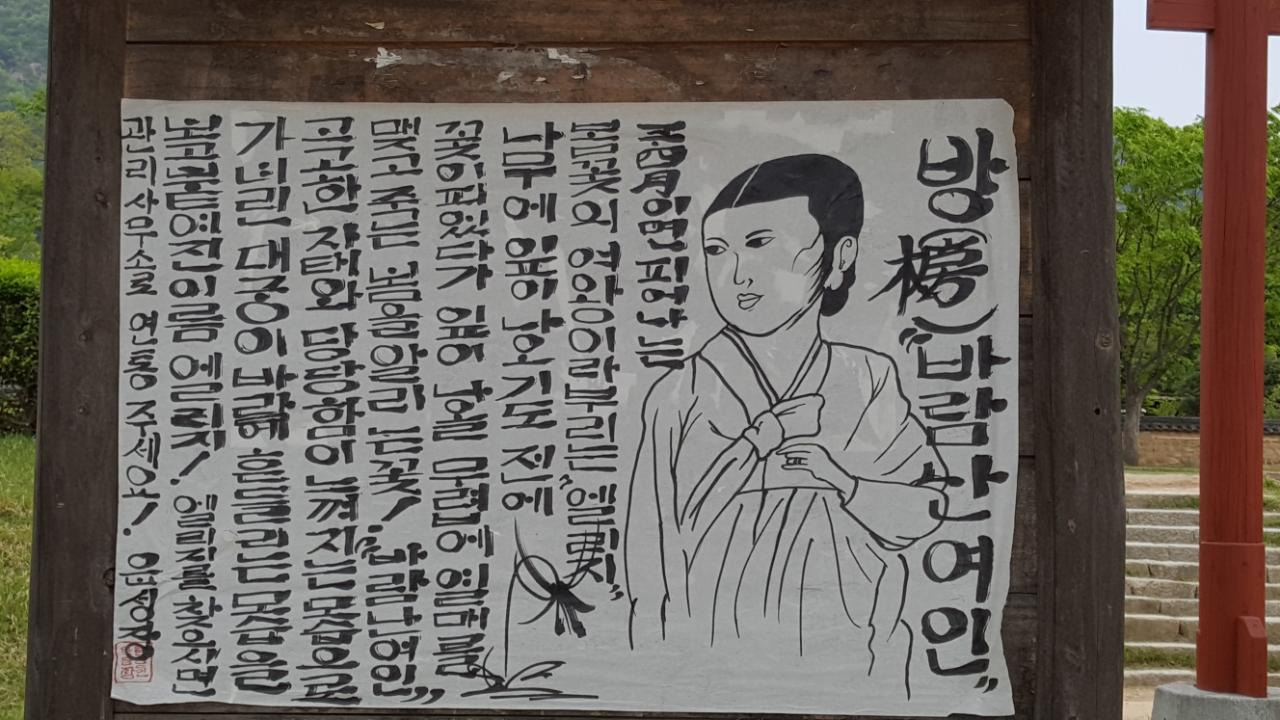 방(榜) "바람난 여인"
꽃이면 피어나는
봄꽃의 여왕이라 부리는 "엘레지"
나무에 잎이 낳오기도 전에
꽃이 피었다가 잎이 낳올 무렵에 열매를
맺고 죽는 봄을 알리는 꽃! "바람난 여인"
곡한 자태와 당당함이 느껴지는 모습으로
가녀린 대궁이 바람에 흔들리는 모습을
보고 붙여진 이름 엘레지! 엘레지를 찾으시면
관리사무소로 연통 주세요!